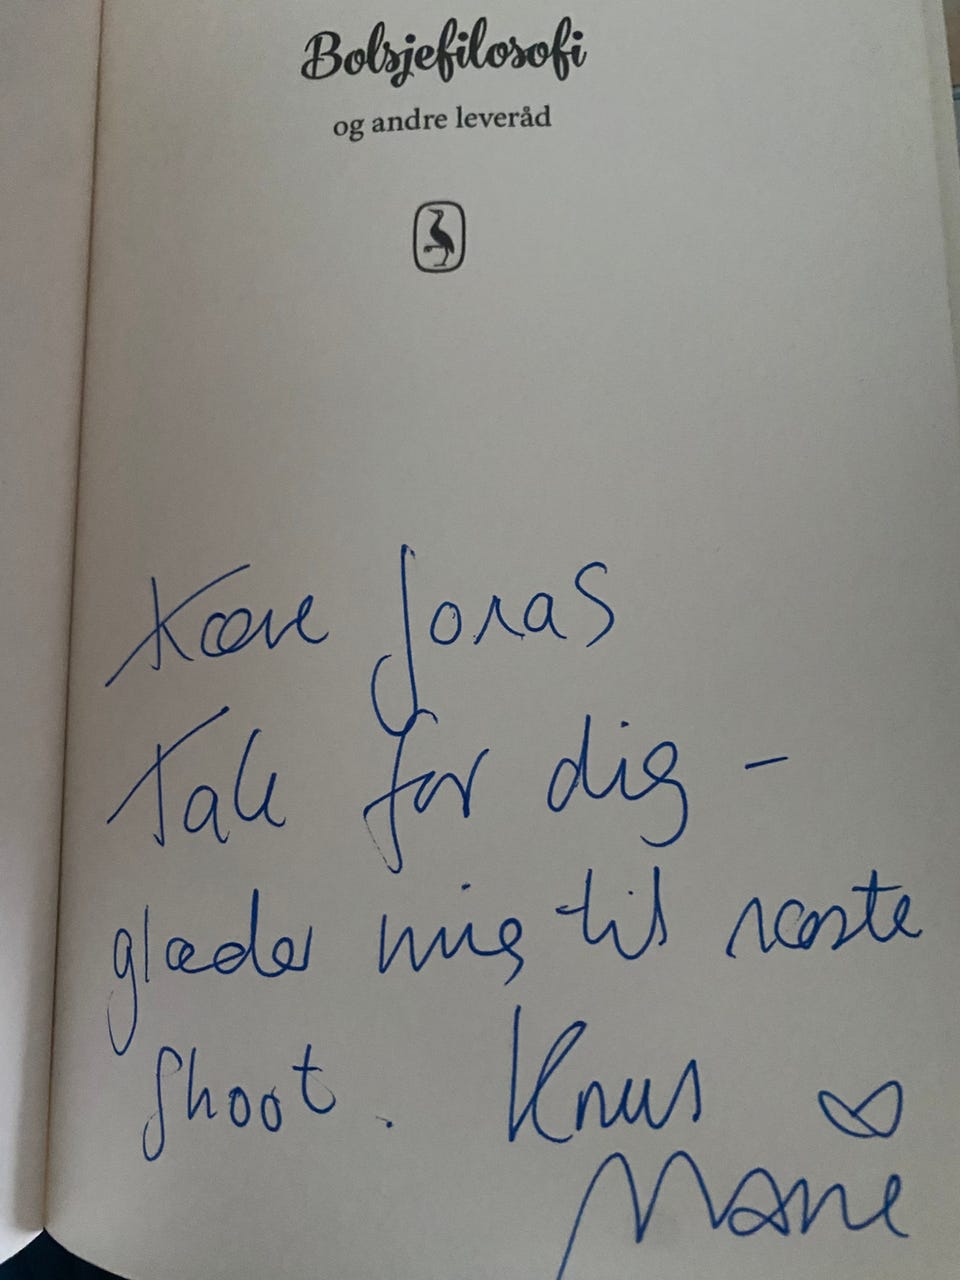 Bolsjefilosofi
og andre leveråd
Kære Jonas
Tak for dig –
glæder mig til næste
shoot. Knus